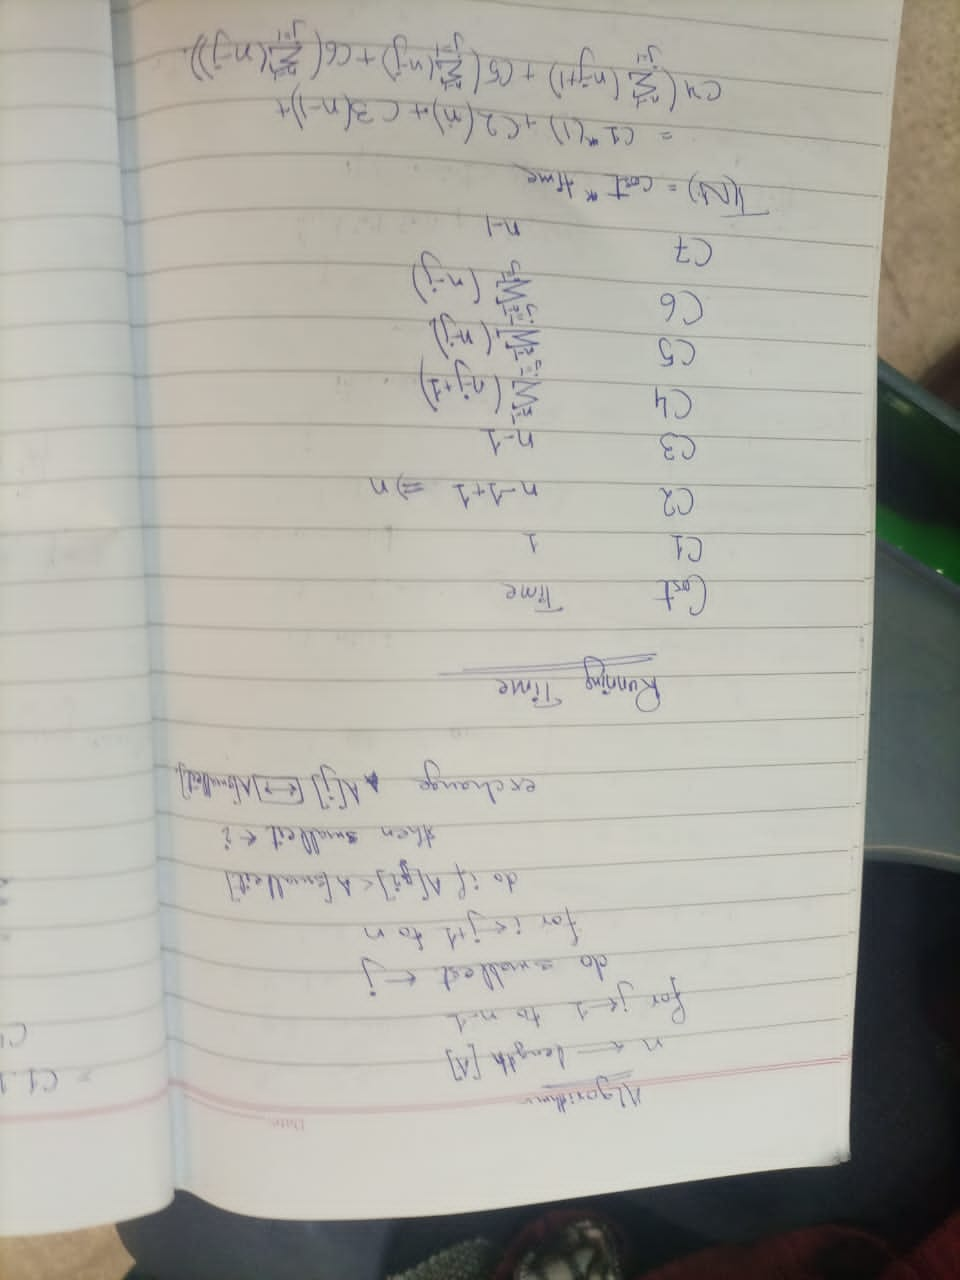 Date:
Algorithm
n ← length [A]
for j ← 1 to n-1
do smallest ← j
for i ← j+1 to n
do if A[i] < A[smallest]
then smallest ← i
exchange A[j] [↔] A[smallest].
Running Time
Cost Time
C1 1
C2 n-1+1 ⇒ n
C3 n-1
C4 n-1∑j=1 (n-j+1)
C5 n-1∑j=1 (n-j)
C6 n-1∑j=1 (n-j)
C7 n-1
= cost * time
= C1 * (1) + C2 (n) + C3 (n-1) +
C4 ( n-1∑j=1 (n-j+1) + C5 ( n-1∑j=1 (n-j) + C6 ( n-1∑j=1 (n-j)).
= C1.1